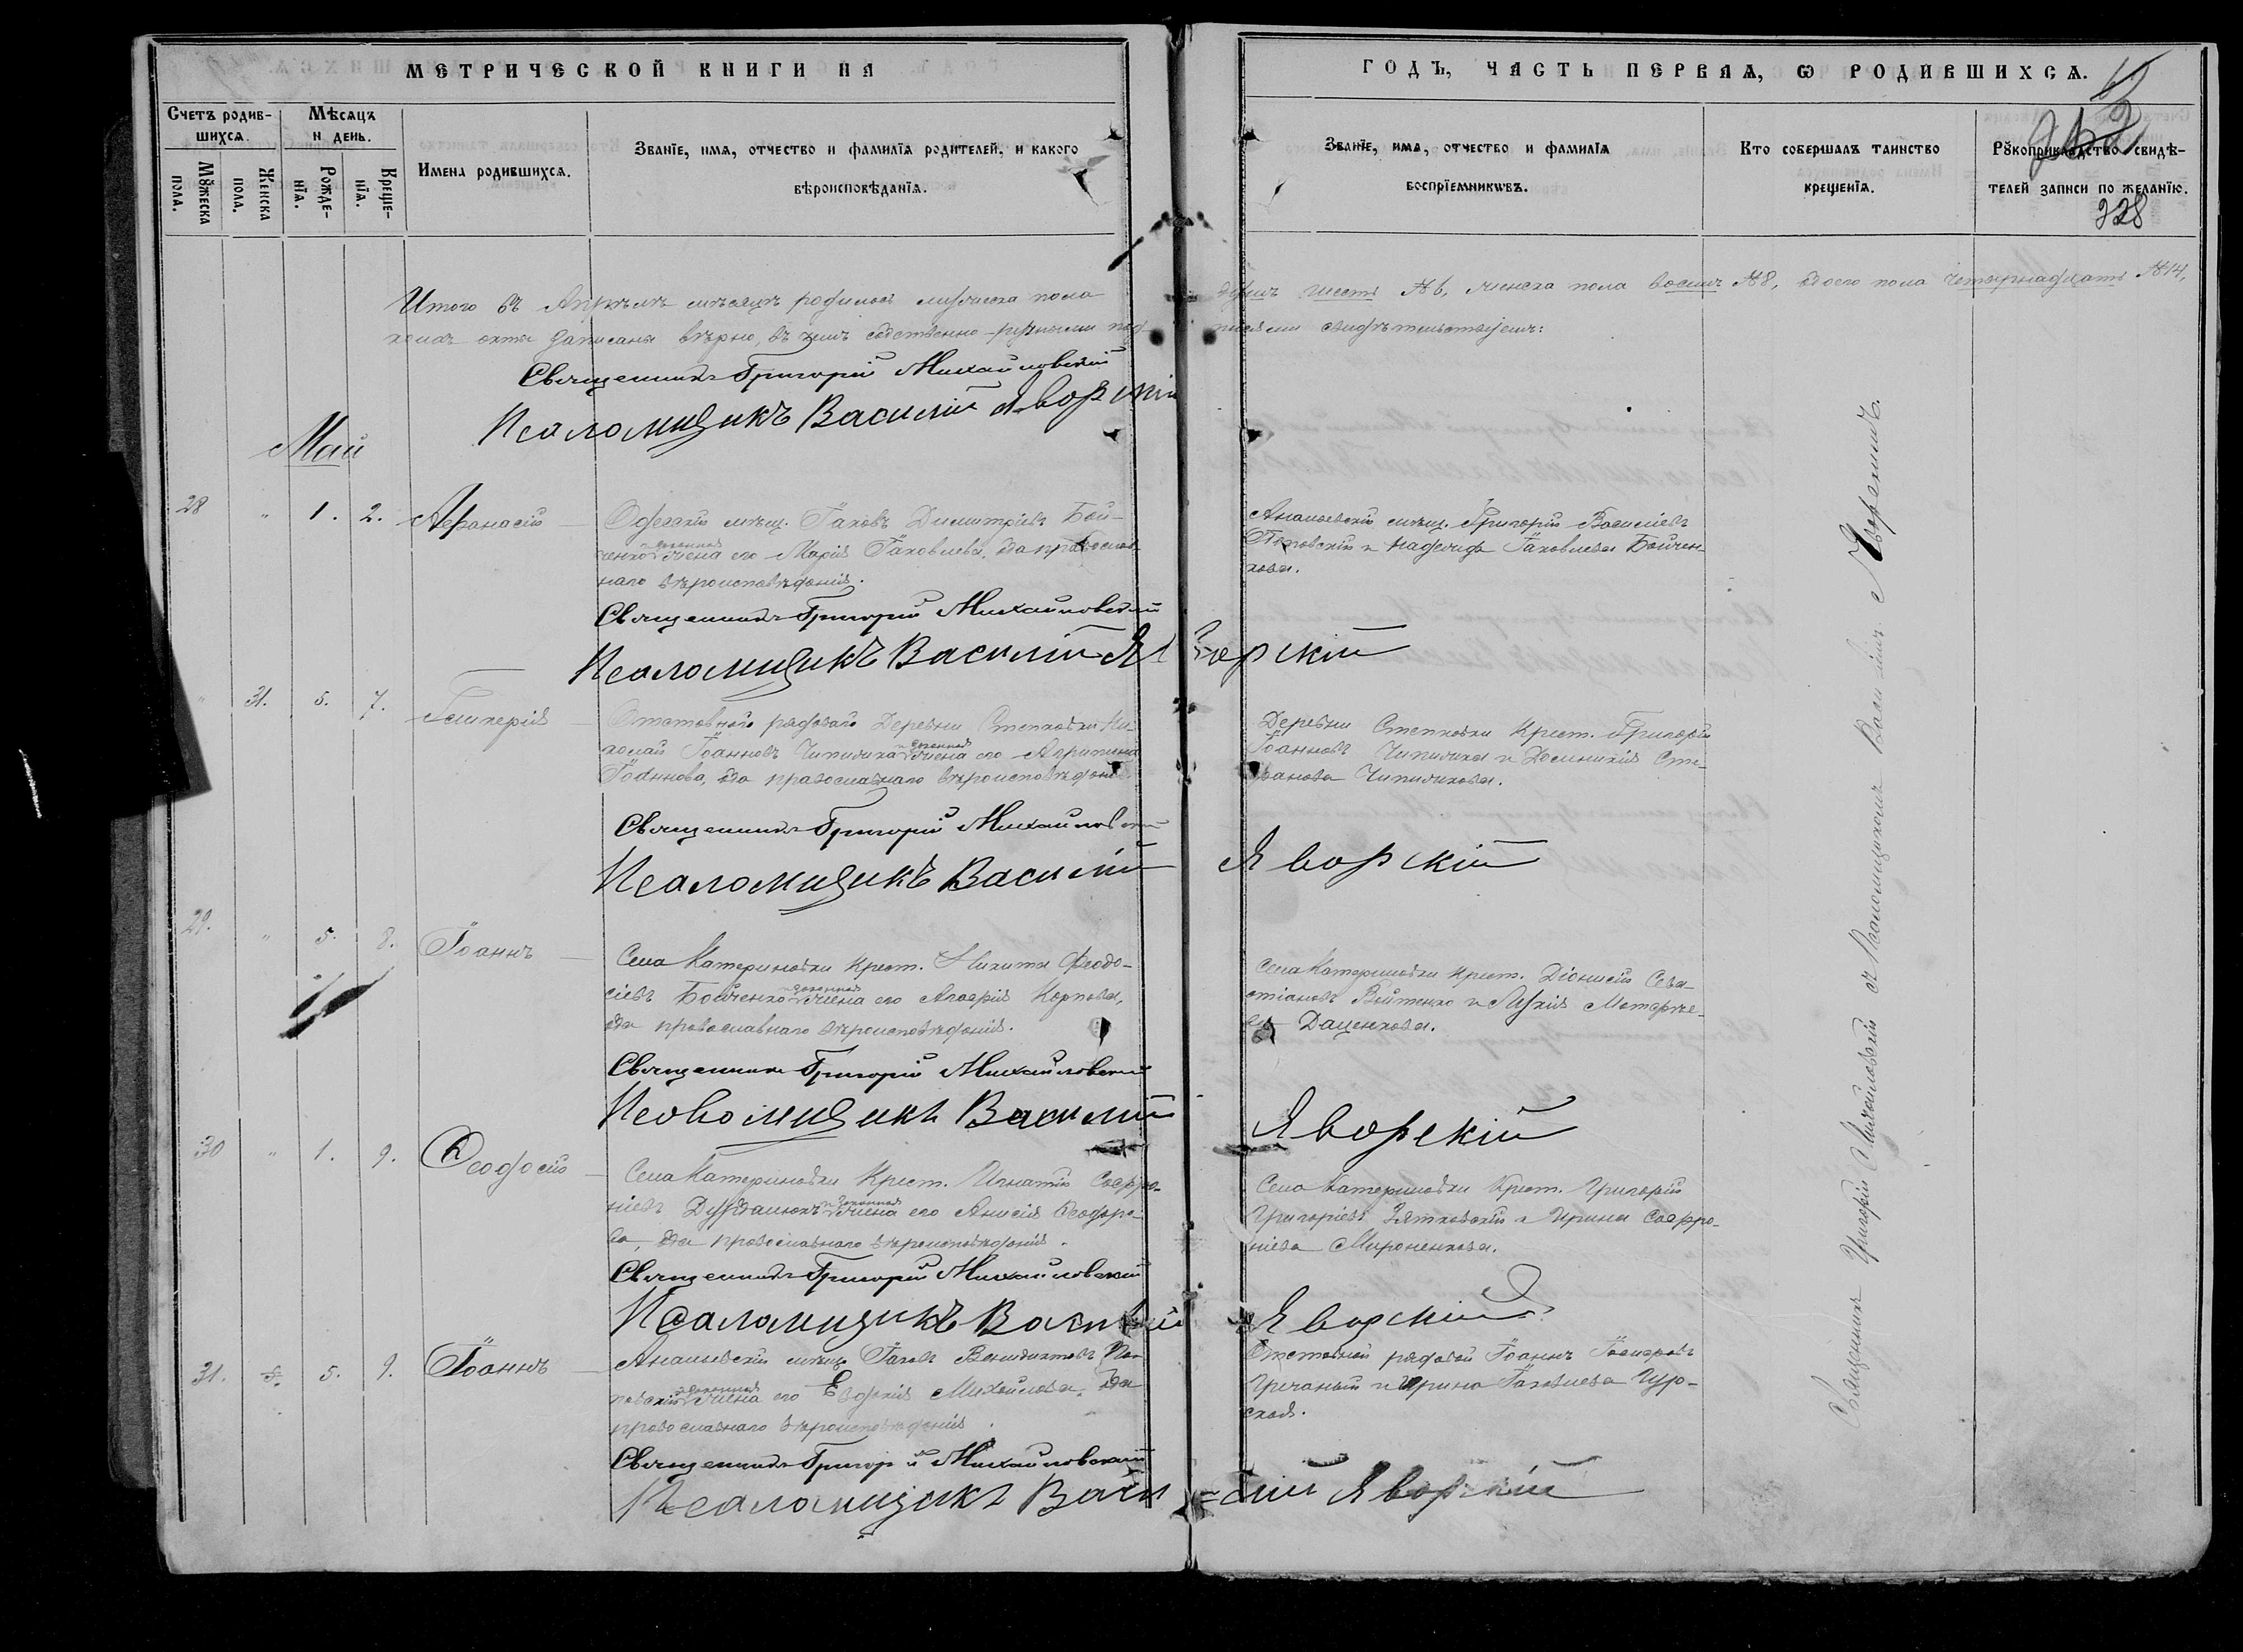 МЕТРИЧЕСКОЙ КНИГИ НА
ГОДЪ, ЧАСТЬ ПЕРВАЯ, Ѡ РОДИВШИХСѦ.
Счетъ родив-
шихсѧ.
Мѣсяцъ
и день.
Мꙋжеска
пола.
Женска
пола.
Рожде-
нїѧ.
Креще-
нїѧ.
Имена родившихсѧ.
Званїе, имѧ, отчество и фамилїѧ родителей, и какого
вѣроисповѣданїѧ.
Званїе, имѧ, отчество и фамилїѧ
воспрїемниковъ.
Кто совершалъ таинство
крещенїѧ.
Рꙋкоприкладство свидѣ-
телей записи по желанїю.
328
Итого въ Апрѣлѣ мѣсяцѣ родилось мужеска пола
шесть №6, женска пола восемь №8, обоего пола четырнадцать №14,
записаны вѣрно, въ чемъ собственно-ручными под-
писями свидѣтельствуемъ:
Священникъ Григорій Михайловскій
Псаломщикъ Василій Яворскій
Май
28 " 1. 2. Афанасій
Одесскій мѣщ. Іаковъ Димитріевъ Бой-
ченко и законная жена его Марія Іаковлева, оба православ-
наго вѣроисповѣданія.
Ананьевскій мѣщ. Григорій Василіевъ
и Надежда Іаковлева Бойчен-
кова.
Священникъ Григорій Михайловскій
Псаломщикъ Василій Яворскій
" 31. 5. 7. Гликерія
Отставного рядового Деревни Степковки Ни-
колай Іоанновъ Чипижка и законная жена его Агрипина
Іоаннова, оба православнаго вѣроисповѣданія
Деревни Степковки Крест. Григорій
Іоанновъ Чипижка и Домникія Сте-
фанова Чипижкова.
Священникъ Григорій Михайловскій
Псаломщикъ Василій Яворскій
29. " 5. 8. Іоаннъ
Села Катериновки Крест. Никита Феодо-
сіевъ Бойченко и законная жена его Карпова,
оба православнаго вѣроисповѣданія.
Села Катериновки Крест. Діонисій Сева-
стіановъ Войтенко и Лукія
Даценкова.
Священникъ Григорій Михайловскій
Псаломщикъ Василій Яворскій
30 " 1. 9. Феодосій
Села Катериновки Крест. Игнатій Софро-
ніевъ и законная жена его Анисія Феодоро-
ва, оба православнаго вѣроисповѣданія.
Село Катериновки Крест. Григорій
Григоріевъ Зятковскій и Ирина Софро-
ніева Мироненкова.
Священникъ Григорій Михайловскій
Псаломщикъ Василій Яворскій
31. 5. 9. Іоаннъ
Ананьевскій мѣщ. Іаковъ
и законная жена его Евдокія Михайлова, оба
православнаго вѣроисповѣданія.
Отставной рядовой Іоаннъ
Гречаный и Ирина Іаковлева Цур-
ская.
Священникъ Григорій Михайловскій
Псаломщикъ Василій Яворскій
Священникъ Григорій Михайловскій съ Псаломщикомъ Василіемъ Яворскимъ.